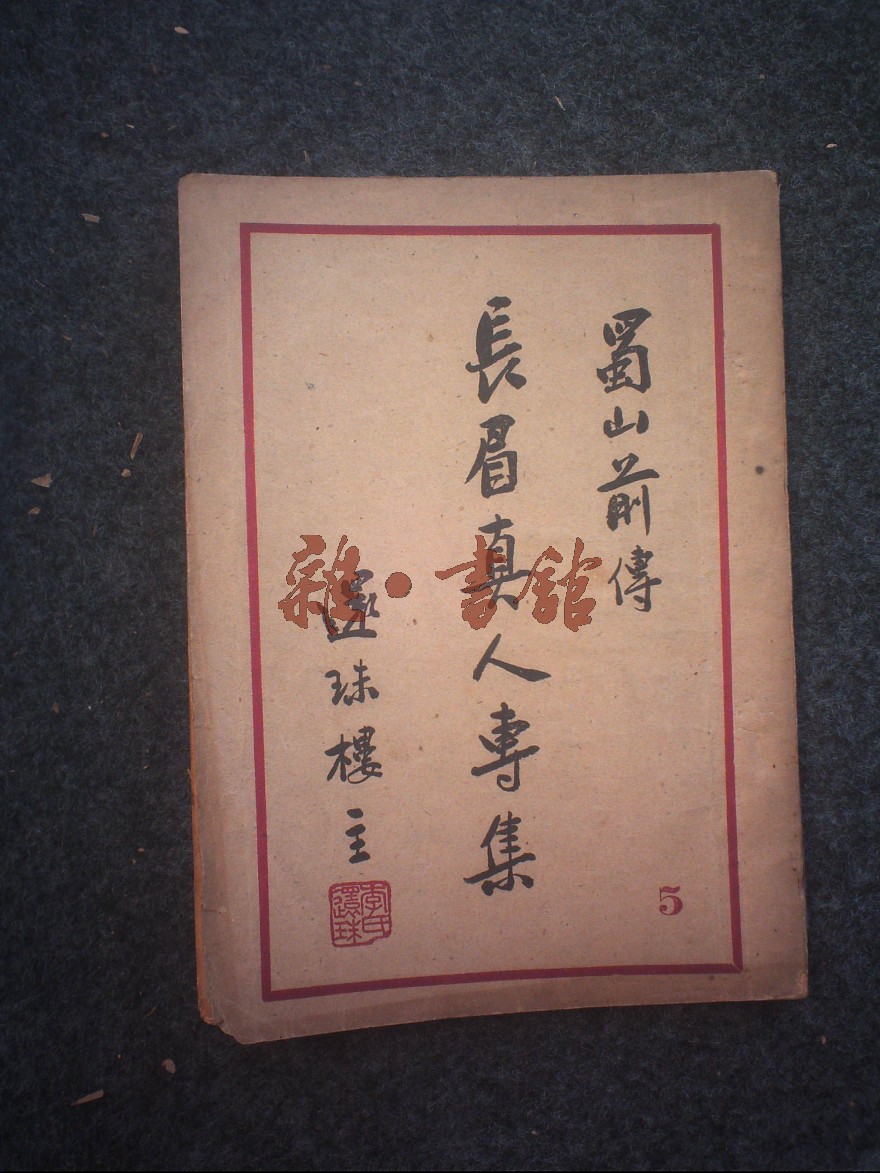 蜀山前傳
長眉真人專集
還珠樓主
李氏還珠
5
雜·書館